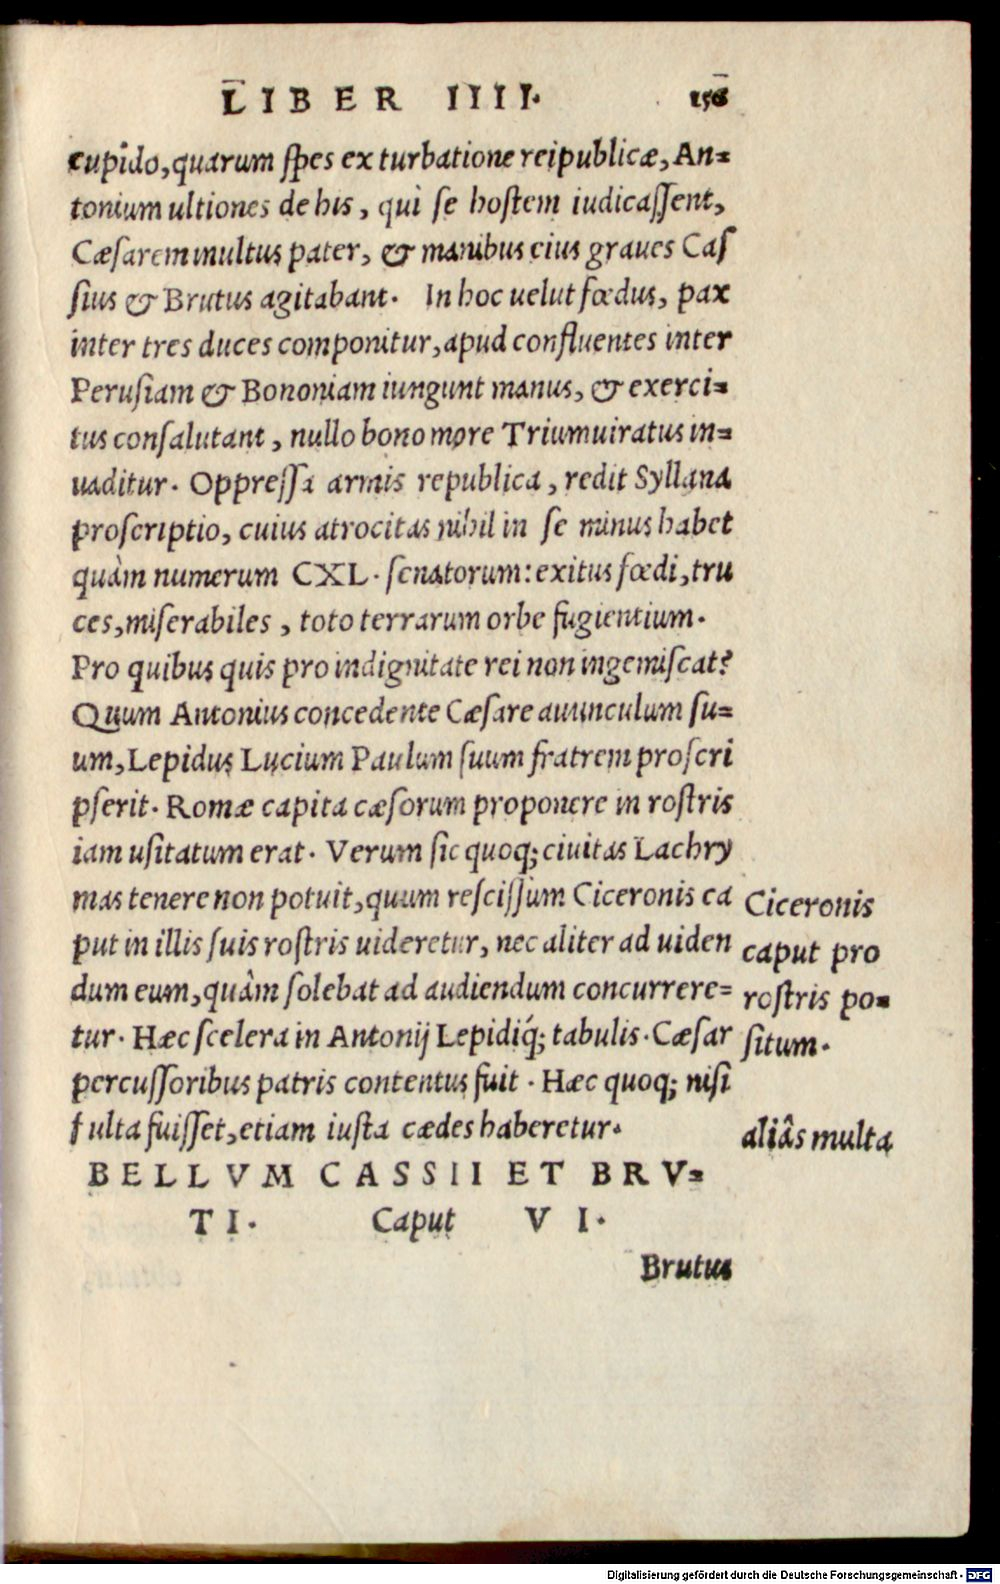 LIBER IIII.
156
cupido, quarum spes ex turbatione reipublicæ, An=
tonium ultiones de his, qui se hostem iudicassent,
Cæsarem inultus pater, & manibus eius graues Cas
sius & Brutus agitabant. In hoc uelut fœdus, pax
inter tres duces componitur, apud confluentes inter
Perusiam & Bononiam iungunt manus, & exerci=
tus consalutant, nullo bono more Triumuiratus in=
uaditur. Oppressa armis republica, redit Syllana
proscriptio, cuius atrocitas nihil in se minus habet
quàm numerum CXL. senatorum: exitus fœdi, tru
ces, miserabiles, toto terrarum orbe fugientium.
Pro quibus quis pro indignitate rei non ingemiscat?
Quum Antonius concedente Cæsare auunculum su=
um, Lepidus Lucium Paulum suum fratrem proscri
pserit. Romæ capita cæsorum proponere in rostris
iam usitatum erat. Verum sic quoq; ciuitas Lachry
mas tenere non potuit, quum rescissum Ciceronis ca
put in illis suis rostris uideretur, nec aliter ad uiden
dum eum, quàm solebat ad audiendum concurrere=
tur. Hæc scelera in Antonij Lepidiq́; tabulis. Cæsar
percussoribus patris contentus fuit. Hæc quoq; nisi
ſulta fuisset, etiam iusta cædes haberetur.
Ciceronis
caput pro
rostris po=
situm.
aliâs multa
BELLVM CASSII ET BRV=
TI. Caput VI.
Brutus
Digitalisierung gefördert durch die Deutsche Forschungsgemeinschaft - DFG